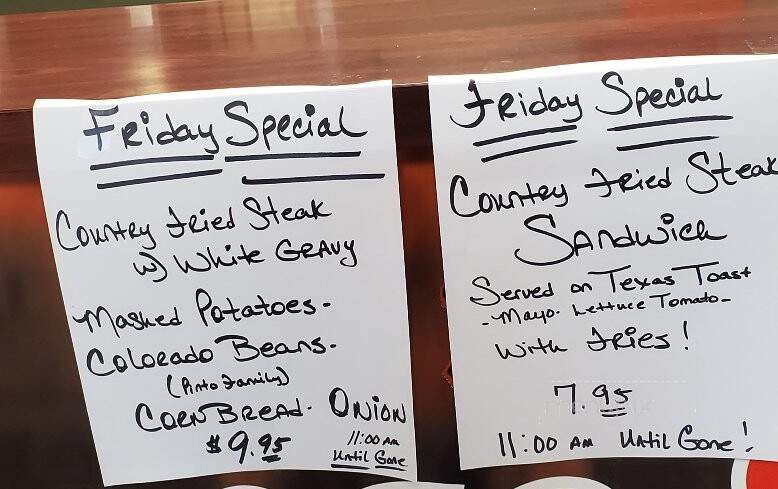 Friday Special
Country Fried Steak
w/ White Gravy
Mashed Potatoes -
Colorado Beans -
(Pinto Family)
Corn Bread - Onion
$9.95
11:00 AM
Until Gone
Friday Special
Country Fried Steak
Sandwich
Served on Texas Toast
- Mayo - Lettuce Tomato -
With Fries!
7.95
11:00 AM Until Gone!